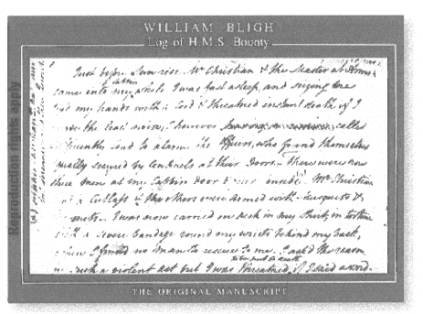 WILLIAM BLIGH
Log of H.M.S. Bounty
Just before Sun rise Mr Christian & the Master at Arms
came into my Cabbin while I was fast asleep, and seizing me
my hands with a Cord & threatned instant death if I
the least noise. I however called
sufficiently loud to alarm the Officers, who found themselves
equally secured by Centinels at their Doors. There were now
three men at my Cabbin door & inside. Mr Christian
a Cutlass & the others were armed with Musquets &
I was now carried on deck in my Shirt, in torture
with a severe bandage round my wrists behind my back,
where I found no man to rescue me. I asked the reason
such a violent act but I was threatned if I said a word.
Reproduction rights apply
THE ORIGINAL MANUSCRIPT